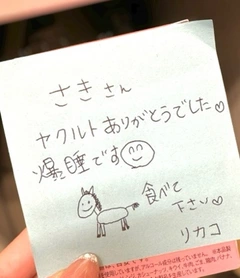 さきさん
ヤクルトありがとうでした♡
爆睡です☺
食べて
下さい♡
リカコ